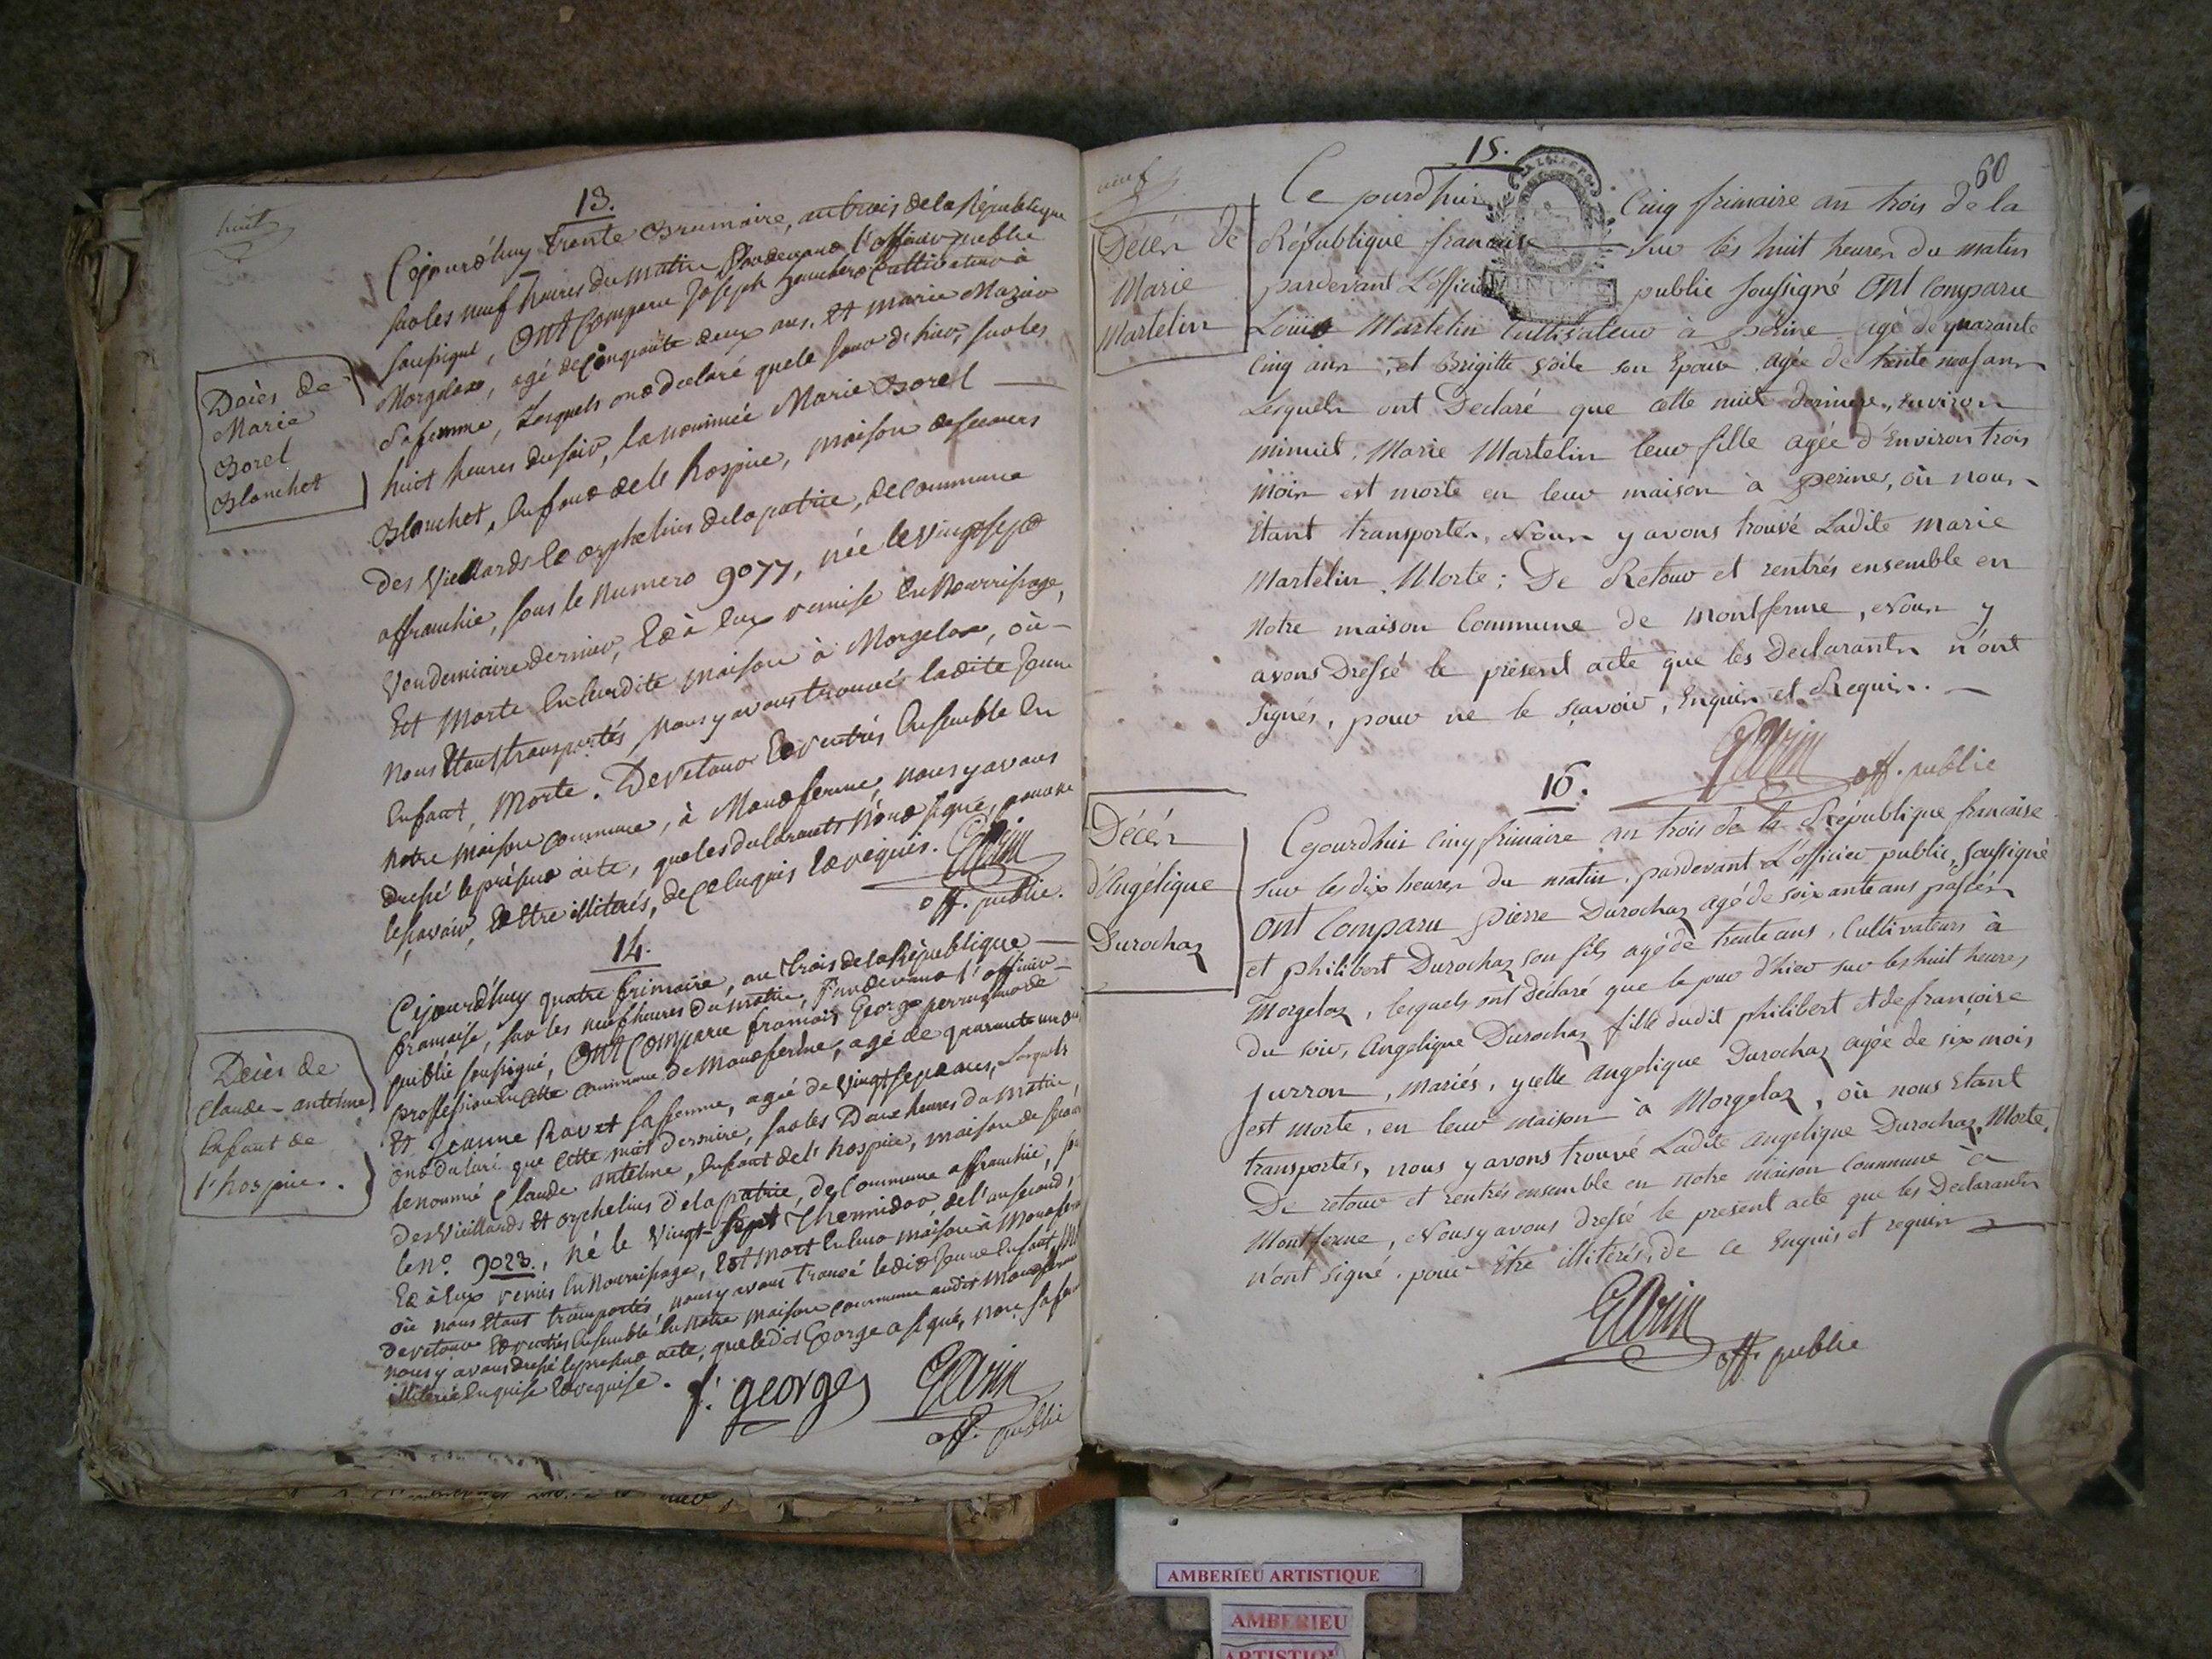 huit
13.
Cejourd'huy trente Brumaire, an trois de la République
sur les neuf heures du matin Pardevant l'officier public
soussigné, ONT Comparu Joseph Cultivateur à
Morgelaz, agé de Cinquante deux ans, et marie Mazuir
sa femme, Lesquels ont declaré que le jour d'hier, sur les
huit heures du soir, la nommée Marie Borel
Blanchet, enfant de l'hospice, maison de secours
des Vieillards et orphelins de la patrie, de commune
affranchie, sous le numero 9077, née le vingt sept
Vendemiaire dernier, et à eux remise en Nourrissage,
est Morte en leurdite maison à Morgelaz, où
nous étant transportés nous y avons trouvé ladite jeune
enfant, Morte. De retour et rentrés ensemble en
notre maison commune, à Montferme, nous y avons
dressé le présent acte, que les declarants n'ont signé, pour ne
le savoir, et être illiterés, de ce enquis et requis.
off. public.
Décès de
Marie
Borel
Blanchet
14.
Cejourd'huy quatre frimaire, an trois de la République
francaise, sur les neuf heures du matin, Pardevant l'officier
public soussigné, ONT Comparu francois George
proffession en cette commune de Montferme, agé de quarante un ans
Et Jeanne Ravet sa femme, agée de vingt sept ans, Lesquels
ont declaré que cette nuit derniere, sur les Deux heures du matin,
le nommé Claude antelme, enfant de l'hospice, maison de secours
des Vieillards et orphelins de la patrie, de Commune affranchie,
le N.º 9023., né le Vingt-Sept Thermidor, de l'an second,
et à eux remis en Nourrissage, est mort en leur maison à Montferme
où nous étant transportés, nous y avons trouvé ledit jeune enfant,
de retour et rentrés ensemble en notre maison commune audit Montferme
nous y avons dressé le present acte, que ledit George a signé, non sa femme
illiterée enquise et requise.
f. georges
off. public
Décès de
Claude-antelme
enfant de
l'hospice.
neuf
15.
60
Ce jourd'hui Cinq frimaire an trois de la
République francaise sur les huit heures du matin
pardevant L'officier public soussigné ONT Comparu
Louis Martelin Cultivateur à perine agé de quarante
cinq ans, et Brigitte son Epouse agée de trente neuf ans
Lesquels ont Declaré que cette nuit derniere, environ
minuit, Marie Martelin leur fille agée d'Environ trois
mois est morte en leur maison à perines, où nous
Etant transportés, Nous y avons trouvé Ladite Marie
Martelin, Morte; De Retour et rentrés ensemble en
Notre maison Commune de montferme, Nous y
avons Dressé le present acte que les Declarants n'ont
Signés, pour ne le sçavoir, Enquis et Requis.
off. public
Décès de
Marie
Martelin
16.
Cejourdhui Cinq frimaire an trois de la République francaise
sur les dix heures du matin, pardevant L'officier public, soussigné
ONT Comparu pierre Durochaz agé de soixante ans passés
et philibert Durochaz son fils agé de trente ans, Cultivateurs à
Morgelaz, lesquels ont Déclaré que le jour d'hier sur les huit heures
du soir, Angelique Durochaz fille dudit philibert et de françoise
Jurron, mariés, ycelle Angelique Durochaz agée de six mois,
est morte, en leur maison à Morgelaz, où nous Etant
transportés, nous y avons trouvé Ladite angelique Durochaz, Morte.
De retour et rentrés ensemble en notre maison Commune à
Montferme, Nous y avons dressé le present acte que les Declarants
n'ont Signé, pour Etre illiterés, de ce Enquis et requis
off. public
Décès
d'Angélique
Durochaz
AMBERIEU ARTISTIQUE
AMBERIEU
ARTISTIQUE